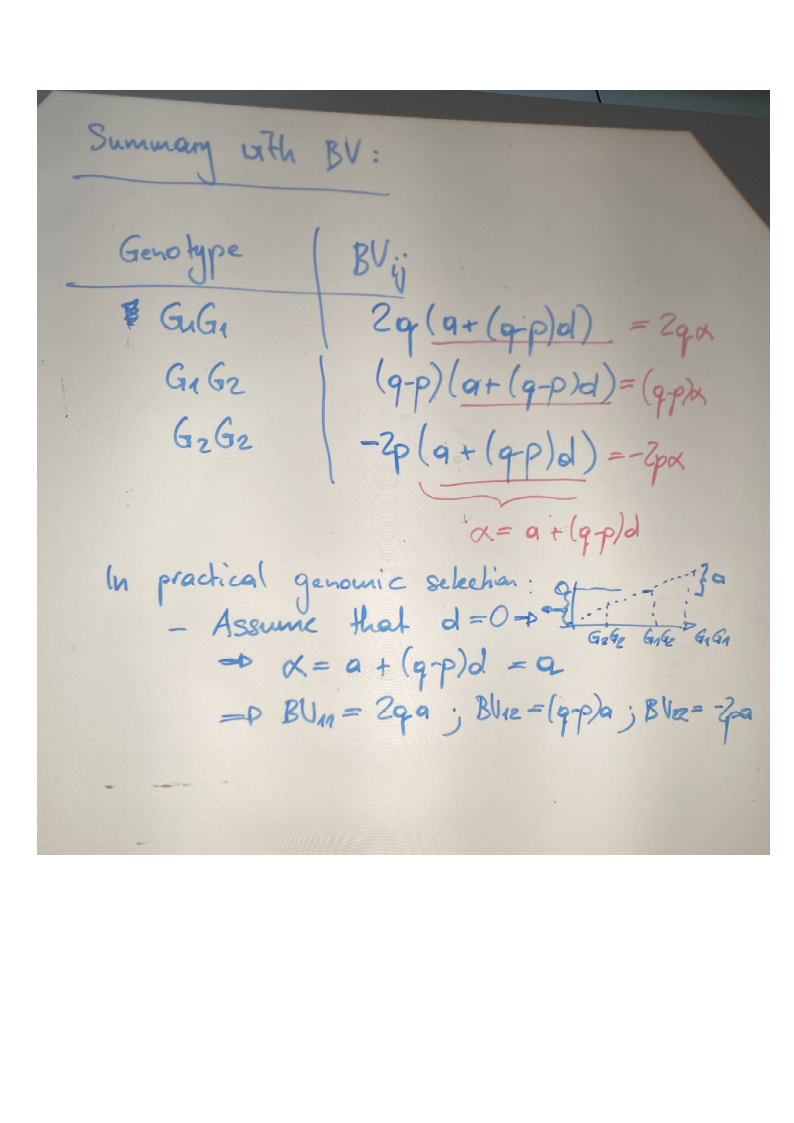 Summary with BV:
Genotype BVij
G1G1 2q(a+(q-p)d) = 2qα
G1G2 (q-p)(a+(q-p)d) = (q-p)α
G2G2 -2p(a+(q-p)d) = -2pα
α = a+(q-p)d
In practical genomic selection:
a
- Assume that d=0 ⇒
G2G2 G1G2 G1G1
⇒ α = a + (q-p)d = a
⇒ BV11 = 2qa ; BV12 = (q-p)a ; BV22 = -2pa